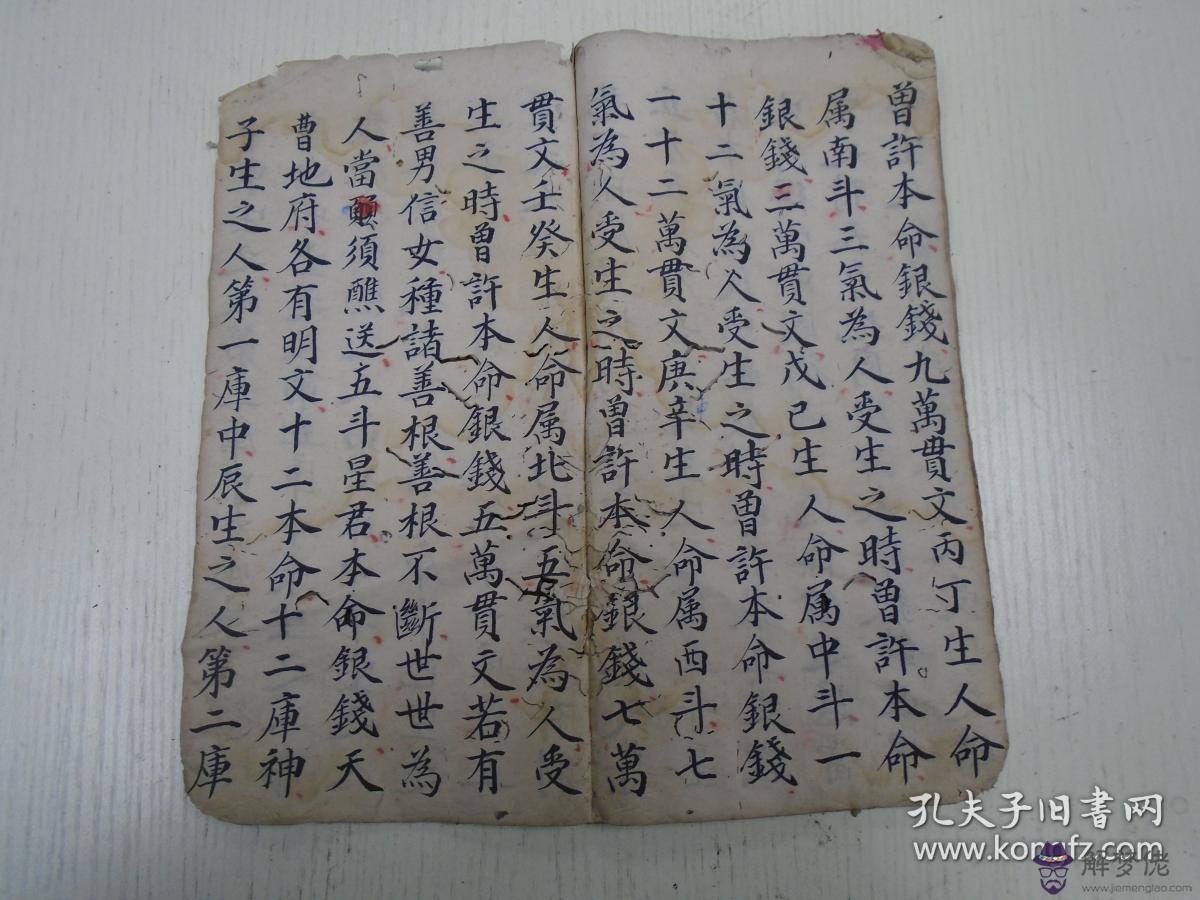 曾許本命銀錢九萬貫文丙丁生人命
属南斗三氣為人受生之時曾許本命
銀錢三萬貫文戊己生人命属中斗一
十二氣為人受生之時曾許本命銀錢
一十二萬貫文庚辛生人命属西斗七
氣為人受生之時曾許本命銀錢七萬
貫文壬癸生人命属北斗五氣為人受
生之時曾許本命銀錢五萬貫文若有
善男信女種諸善根善根不斷世世為
人當願須醮送五斗星君本命銀錢天
曹地府各有明文十二本命十二庫神
子生之人第一庫中辰生之人第二庫
孔夫子旧书网
www.kongfz.com
解梦佬
www.jiemenglao.com